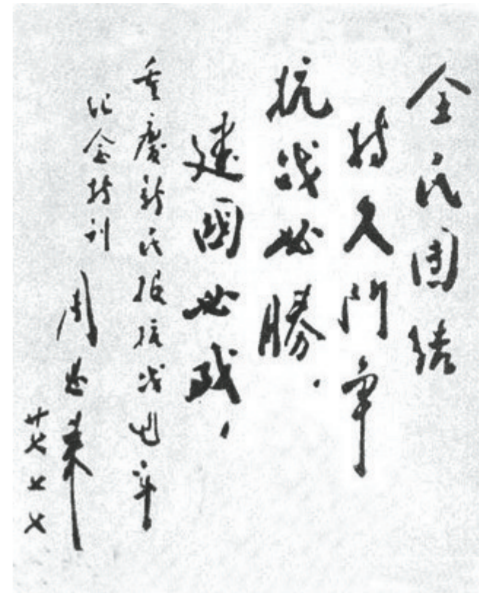 全民团结
持久鬥争
抗战必勝.
建國必成,
重慶新民报抗战年
纪念特刊
周恩来
廿七 七 七